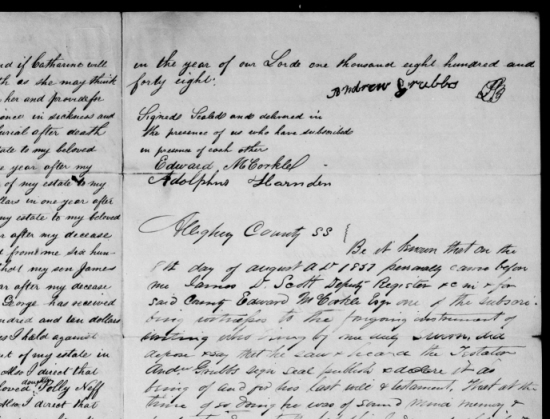 d if Catharine will
th as she may think
her and provide for
ence in sickness and
urial after death
tate to my beloved
e year after my
of my estate to my
llars in one year after
my estate to my beloved
r after my decease
from me six hun-
my son James
ar after my decease
George has received
ndred and ten dollars
I hold against
t of my estate in
I direct that
loved daughter Polly Neff
I direct that
in the year of our Lorde one thousand eight hundred and
forty eight.
Andrew Grubbs
Signed Sealed and delivered in
the presence of us who have submited
in presence of each other
Edward McCorkle
Adolphus Harnden
Allegheny County SS
Be it known that on the
8th day of august AD 1857 personally came before
me James D Scott Deputy Register &c in & for
said County Edward McCorkle Esqr one of the subscri
bing witnesses to the forgoing instrument of
writing who being by me duly sworn did
depose & say that he saw & heard the Testator
Andw Grubbs sign seal publish & declare it as
being of and for his last will & testament, that at the
time of so doing he was of sound mind memory &